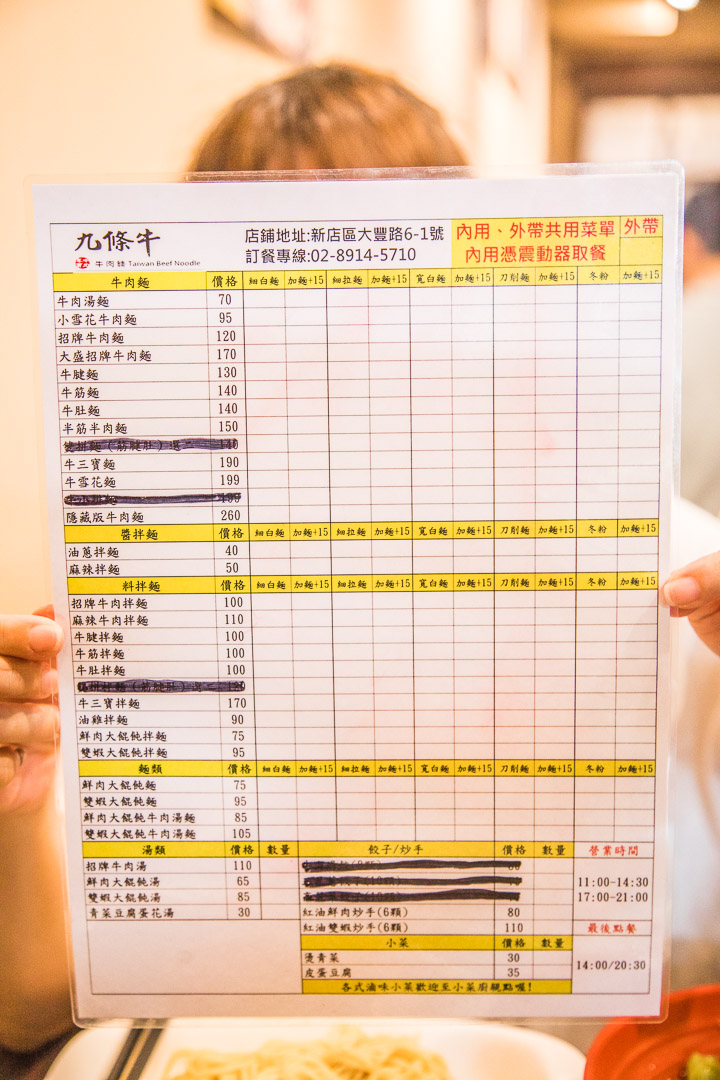 九條牛
牛肉麵 Taiwan Beef Noodle
店鋪地址:新店區大豐路6-1號
訂餐專線:02-8914-5710
內用、外帶共用菜單
內用憑震動器取餐
外帶
牛肉麵 價格 細白麵 加麵+15 細拉麵 加麵+15 寬白麵 加麵+15 刀削麵 加麵+15 冬粉 加麵+15
牛肉湯麵 70
小雪花牛肉麵 95
招牌牛肉麵 120
大盛招牌牛肉麵 170
牛腱麵 130
牛筋麵 140
牛肚麵 140
半筋半肉麵 150
牛三寶麵 190
牛雪花麵 199
隱藏版牛肉麵 260
醬拌麵 價格 細白麵 加麵+15 細拉麵 加麵+15 寬白麵 加麵+15 刀削麵 加麵+15 冬粉 加麵+15
油蔥拌麵 40
麻辣拌麵 50
料拌麵 價格 細白麵 加麵+15 細拉麵 加麵+15 寬白麵 加麵+15 刀削麵 加麵+15 冬粉 加麵+15
招牌牛肉拌麵 100
麻辣牛肉拌麵 110
牛腱拌麵 100
牛筋拌麵 100
牛肚拌麵 100
牛三寶拌麵 170
油雞拌麵 90
鮮肉大餛飩拌麵 75
雙蝦大餛飩拌麵 95
麵類 價格 細白麵 加麵+15 細拉麵 加麵+15 寬白麵 加麵+15 刀削麵 加麵+15 冬粉 加麵+15
鮮肉大餛飩麵 75
雙蝦大餛飩麵 95
鮮肉大餛飩牛肉湯麵 85
雙蝦大餛飩牛肉湯麵 105
湯類 價格 數量
招牌牛肉湯 110
鮮肉大餛飩湯 65
雙蝦大餛飩湯 85
青菜豆腐蛋花湯 30
餃子/炒手 價格 數量
紅油鮮肉炒手(6顆) 80
紅油雙蝦炒手(6顆) 110
小菜 價格 數量
燙青菜 30
皮蛋豆腐 35
各式滷味小菜歡迎至小菜廚親點喔!
營業時間
11:00-14:30
17:00-21:00
最後點餐
14:00/20:30